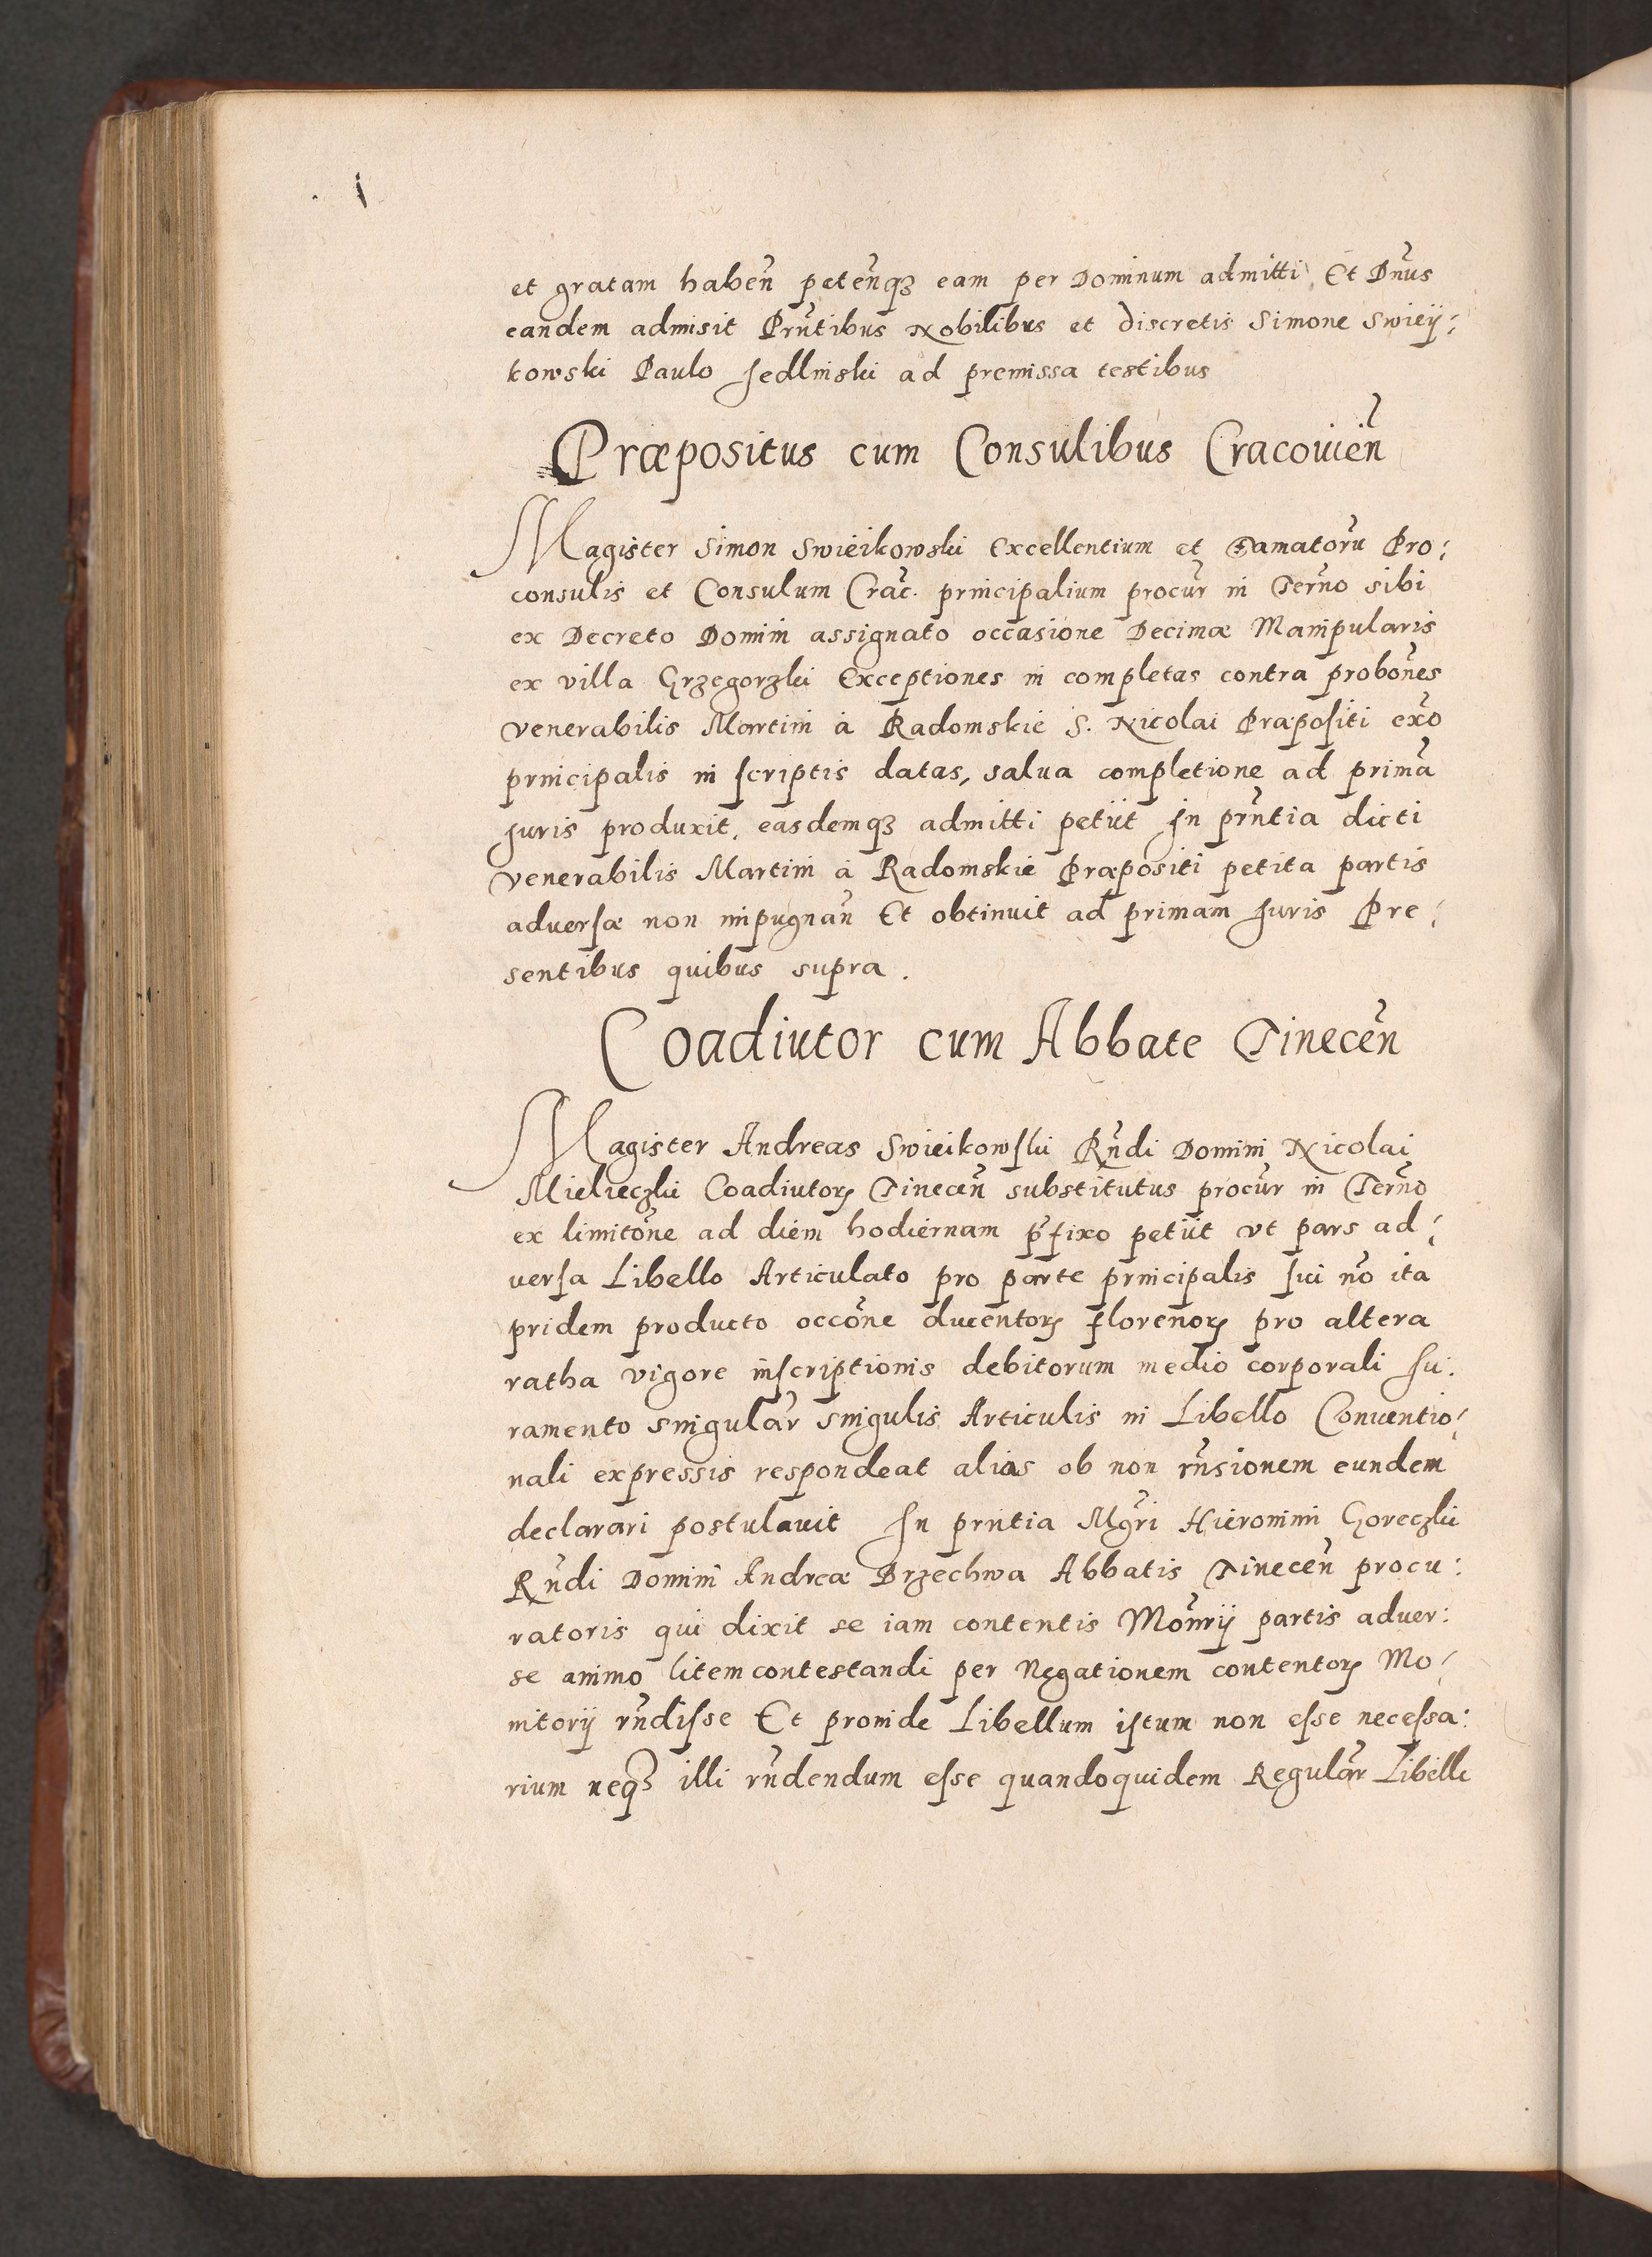 et gratam haben̄ peten̄qꝫ eam per Dominum admitti, Et Dn̄us
eandem admisit Prn̄tibus Nobilibus et discretis Simone Swieÿ:
kowski Paulo Jedlinski ad premissa testibus
Præpositus cum Consulibus Cracouien̄
Magister Simon Swieikowski Excellentium et Famatorū Pro:
consulis et Consulum Crac̄. principalium procur̄ in Ter̄no sibi
ex Decreto Domini assignato occasione Decimæ Manipularis
ex villa Grzegorzki Exceptiones in completas contra probōnes
venerabilis Martini à Radomskie S. Nicolai Præpoſiti exō
principalis in ſcriptis datas, salua completione ad primā
Juris produxit, easdemqꝫ admitti petiit In prn̄tia dicti
venerabilis Martini à Radomskie Præpositi petita partis
aduerſæ non impugnan̄ Et obtinuit ad primam Juris Pre:
sentibus quibus supra.
Coadiutor cum Abbate Tinecen̄
Magister Andreas Swieikowſki Rn̄di Domini Nicolai
Mielieczki Coadiutorꝭ Tinecen̄ substitutus procur̄ in Ter̄no
ex limitōne ad diem hodiernam p̄fixo petiit vt pars ad:
uerſa Libello Articulato pro parte principalis ſui nō ita
pridem producto occōne ducentorꝝ florenorꝝ pro altera
ratha vigore inſcriptionis debitorum medio corporali Ju:
ramento singular̄ singulis Articulis in Libello Conuentio:
nali expressis respondeat alias ob non rn̄sionem eundem
declarari postulauit In prntia Mgr̄i Hieronimi Goreczki
Rn̄di Domini Andreæ Brzechwa Abbatis Tinecen̄ procu:
ratoris qui dixit se iam contentis Mon̄rij partis aduer:
se animo litem contestandi per Negationem contentorꝝ Mo:
nitorij rn̄diſse Et proinde Libellum iſtum non eſse neceſsa:
rium neqꝫ illi rn̄dendum eſse quandoquidem Regular̄ Libelli